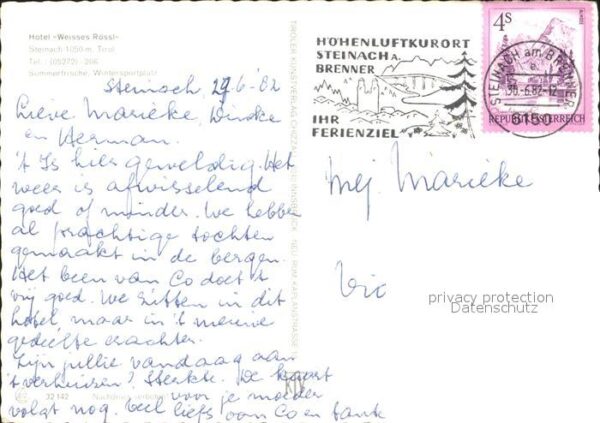 Hotel »Weisses Rössl«
Steinach 1050 m, Tirol
Tel.: (05272) 206
Sommerfrische, Wintersportplatz
Steinach, 29-6-'82
Lieve Marieke, Dineke
en Herman.
't Is hier geweldig. Het
weer is afwisselend
goed of minder. We hebben
al prachtige tochten
gemaakt in de bergen.
Het been van Co doet 't
vrij goed. We zitten in dit
hotel, maar in 't nieuwe
gedeelte erachter.
Zijn jullie vandaag aan
't verhuizen? Sterkte. De kaart
voor je moeder
volgt nog. Veel liefs van Co en tante
32142
Nachdruck verboten
TIROLER KUNSTVERLAG CHIZZALI INNSBRUCK
HÖHENLUFTKURORT
STEINACH A.
BRENNER
IHR
FERIENZIEL
4S
STEINACH am BRENNER
30.-6.82-12
6150
REPUBLIK ÖSTERREICH
Mej. Marieke
privacy protection
Datenschutz